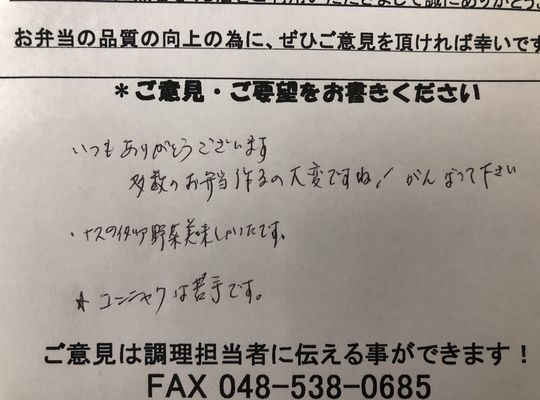 お弁当の品質の向上の為に、ぜひご意見を頂ければ幸いです
＊ご意見・ご要望をお書きください
いつもありがとうございます
多数のお弁当作るの大変ですね！ がんばって下さい
・ナスの 野菜美味しかったです。
☆ コンニャクは苦手です。
ご意見は調理担当者に伝える事ができます！
FAX 048-538-0685